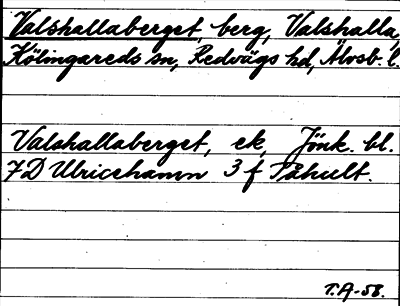 Valshallaberget, berg, Valshalla,
Kölingareds sn, Redvägs hd, Älvsb. l.
Valshallaberget, ek, Jönk. bl.
7D Ulricehamn 3 f Påhult.
T.A-58.